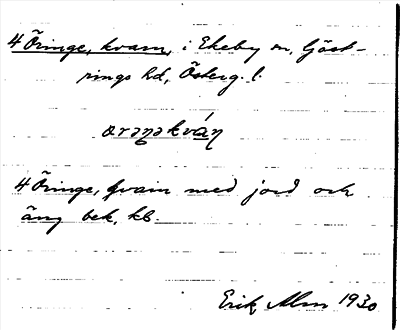 4 Öringe, kvarn, i Ekeby sn, Göst-
rings hd, Österg. l.
ørəŋəkváɳ
4 Öringe, Qvarn med jord och
äng bek. kb.
Erik Alm 1930